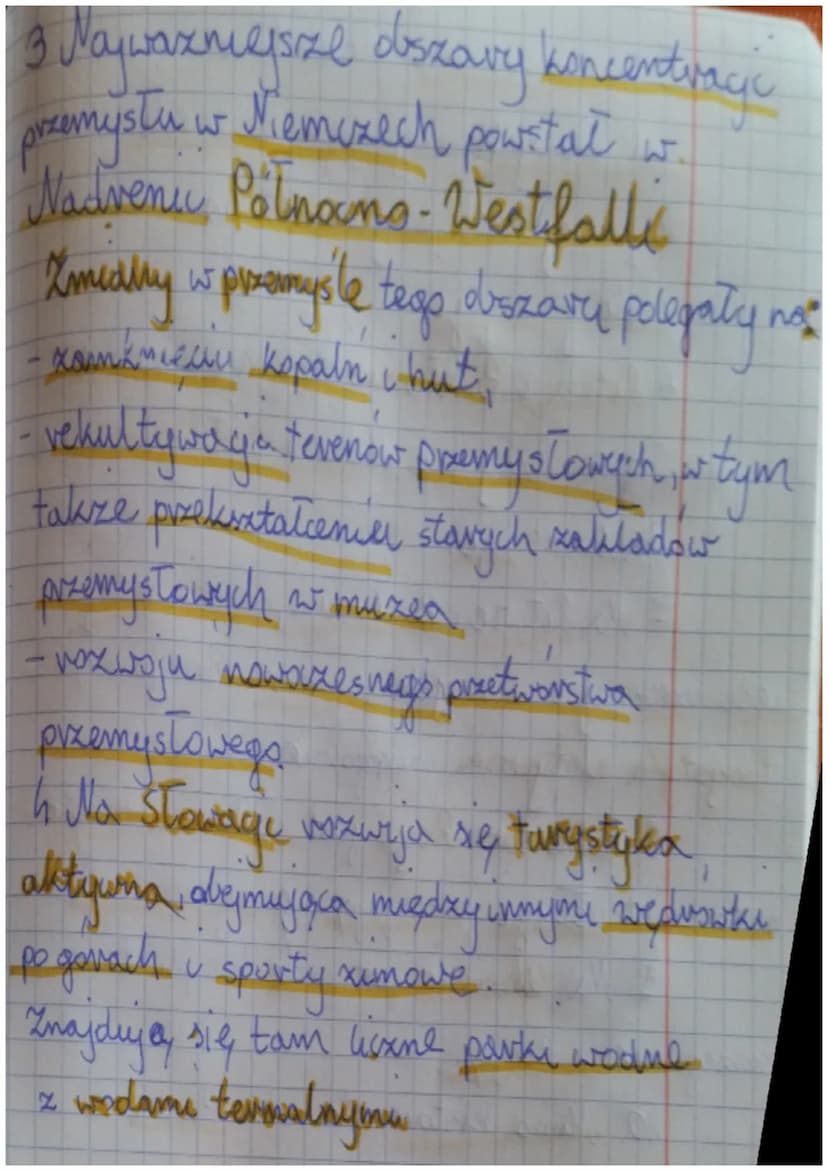 3 Najważniejsze obszary koncentracji
przemysłu w Niemczech powstał w
Nadrenii Północno-Westfalii
Zmiany w przemyśle tego obszaru polegały na:
- zamknięciu kopalń i hut,
- rekultywacja terenów przemysłowych, w tym
także przekształceniu starych zakładów
przemysłowych w muzea
- rozwoju nowoczesnego przetwórstwa
przemysłowego.
4 Na Słowacji rozwija się turystyka
aktywna, obejmująca między innymi wędrówki
po górach i sporty zimowe.
Znajdują się tam liczne parki wodne
z wodami termalnymi